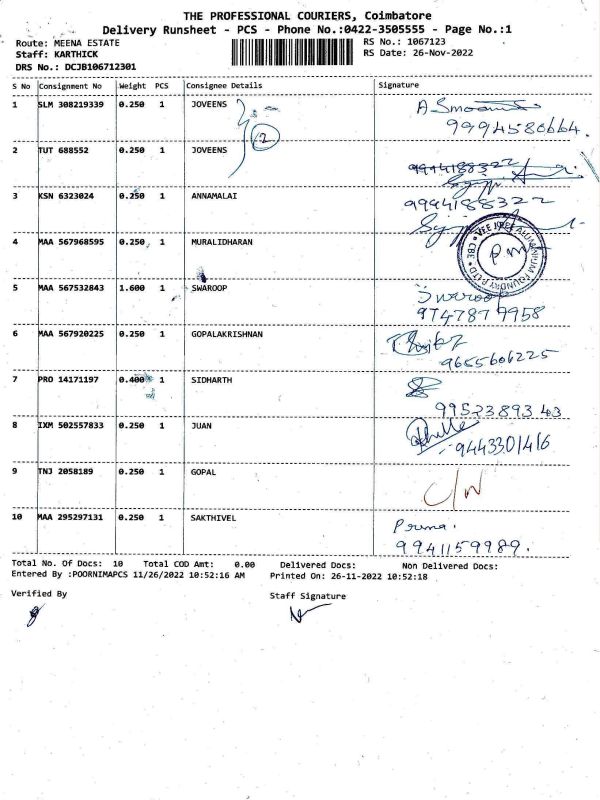 THE PROFESSIONAL COURIERS, Coimbatore
Delivery Runsheet - PCS - Phone No.:0422-3505555 - Page No.:1
Route: MEENA ESTATE
RS No.: 1067123
Staff: KARTHICK
RS Date: 26-Nov-2022
DRS No.: DCJB106712301
S No Consignment No Weight PCS Consignee Details Signature
1 SLM 308219339 0.250 1 JOVEENS
9994580664.
2
2 TUT 688552 0.250 1 JOVEENS
9994188322
3 KSN 6323024 0.250 1 ANNAMALAI
9994188322
4 MAA 567968595 0.250 1 MURALIDHARAN
VEE JAEE ALUMINIUM FOUNDRY P LTD * CBE *
P m
5 MAA 567532843 1.600 1 SWAROOP
Swaroop
9747879958
6 MAA 567920225 0.250 1 GOPALAKRISHNAN
9655606225
7 PRO 14171197 0.400 1 SIDHARTH
9952389343
8 IXM 502557833 0.250 1 JUAN
9443301416
9 TNJ 2058189 0.250 1 GOPAL
C/N
10 MAA 295297131 0.250 1 SAKTHIVEL
Prema.
9941159989.
Total No. Of Docs: 10 Total COD Amt: 0.00 Delivered Docs: Non Delivered Docs:
Entered By :POORNIMAPCS 11/26/2022 10:52:16 AM Printed On: 26-11-2022 10:52:18
Verified By
Staff Signature